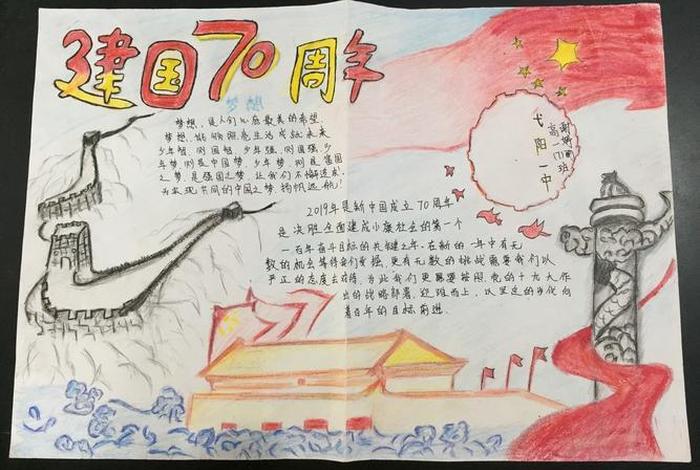 建国70周年
梦想
梦想,是人们心底最美的希望.
梦想,能够照亮生活成就未来
少年智,则国智,少年强,则国强,少
年梦则是中国梦,少年梦,则是富国
之梦,是强国之梦,让我们不懈追求,
为实现共同的中国之梦,扬帆远航!
2019年是新中国成立70周年
是决胜全面建成小康社会的第一个
一百年奋斗目标的关键之年.在新的一年中有无
数的机会等待我们发掘,更有无数的挑战需要我们以
严正的态度去对待,为此我们更需要按照党的十九大作
出的战略部署,迎难而上,以坚定的步伐向
着百年的目标前进.
弋阳一中
高一(7)班